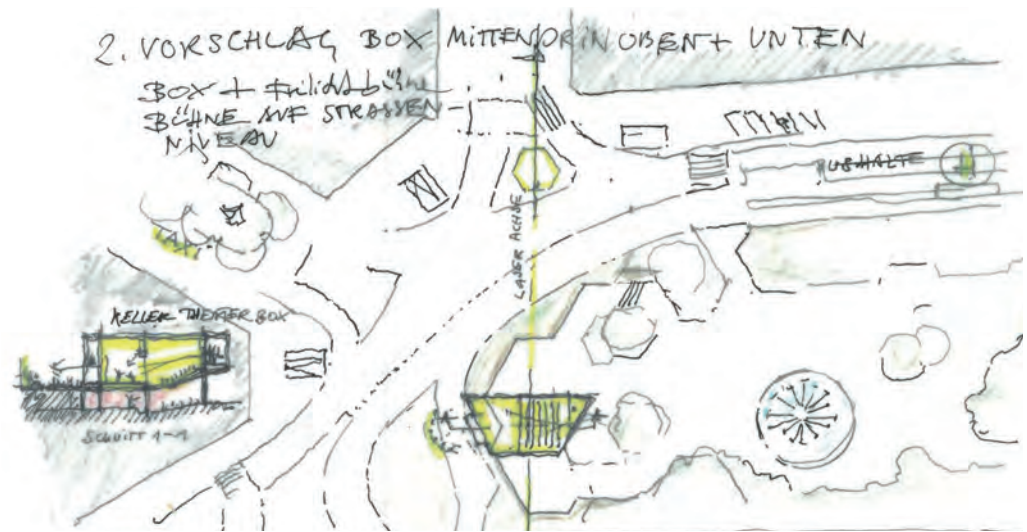 2. VORSCHLAG BOX MITTENDRIN OBEN + UNTEN
BOX + Freilichtbühne
BÜHNE AUF STRASSEN
NIVEAU
USHALTE
LASER ACHSE
KELLER THEATER BOX
Schnitt 1-1